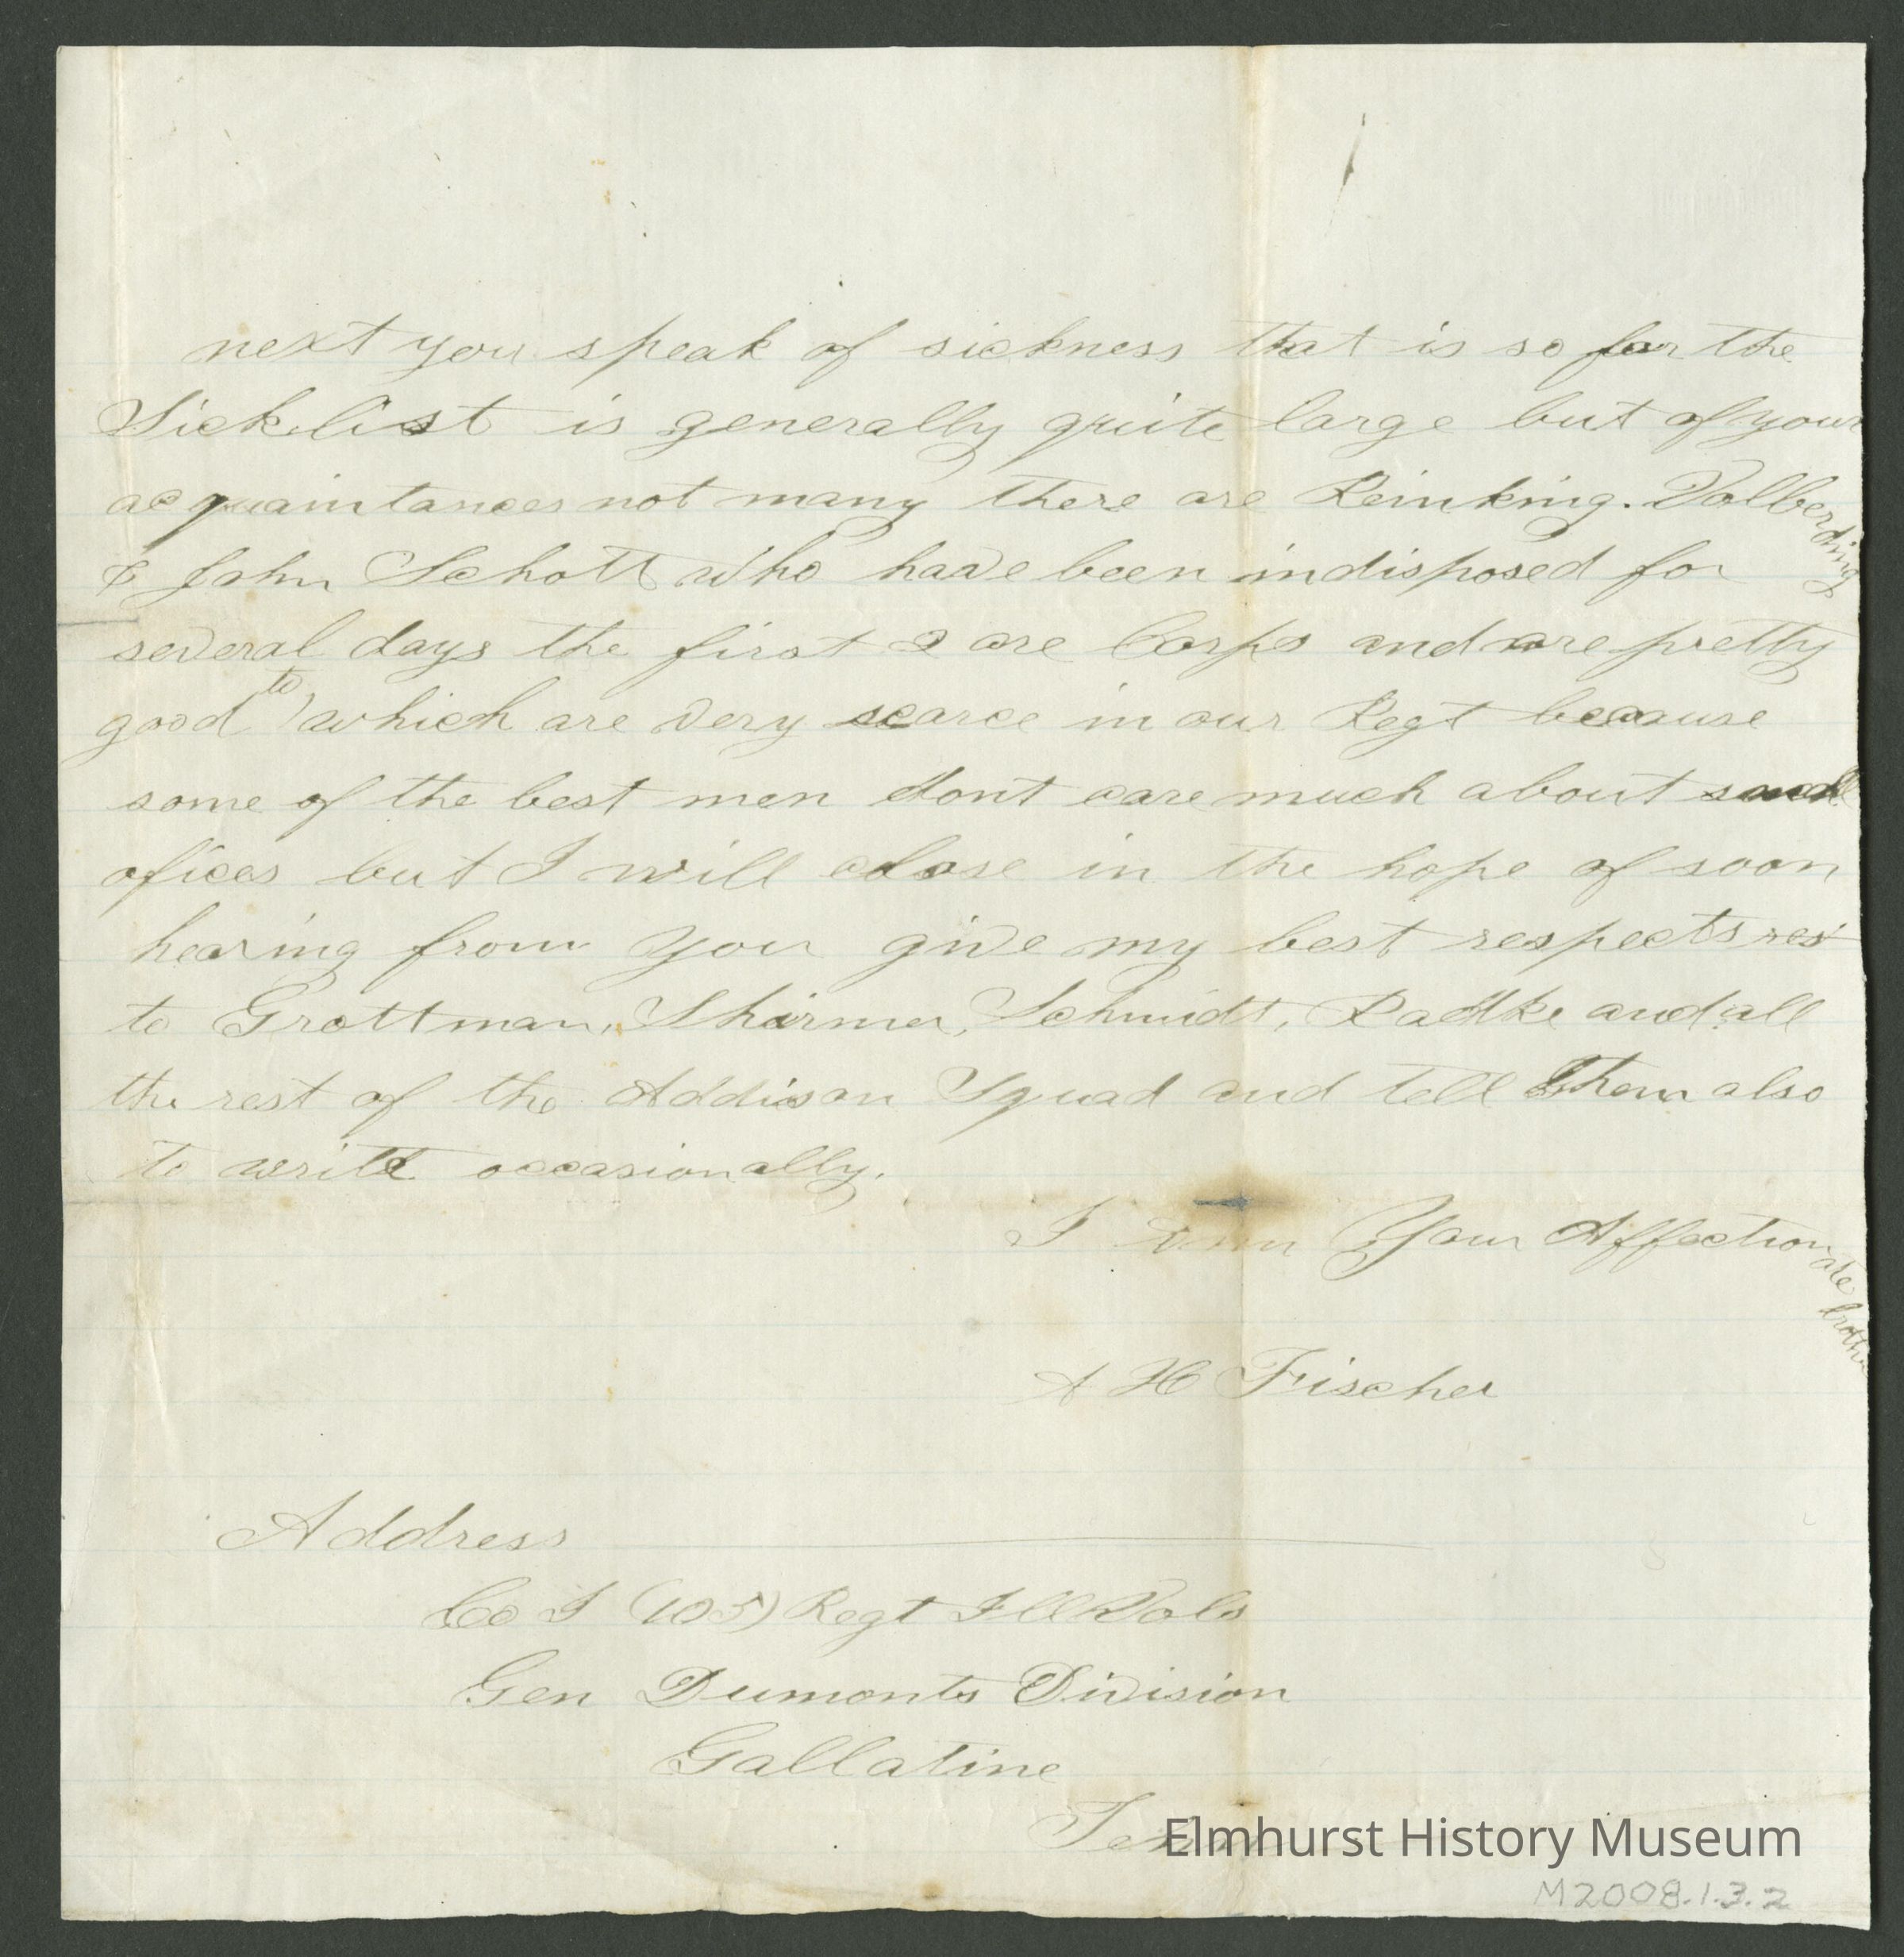 next you speak of sickness that is so far the
Sick list is generally quite large but of your
acquaintances not many there are Reinking. Volberding
& John Schott who have been indisposed for
several days the first 2 are Corps and are pretty
good to which are very scarce in our Regt because
some of the best men dont care much about small
ofices but I will close in the hope of soon
hearing from you give my best respects res
to Grottman, Shirmer, Schmidt, Radtke and all
the rest of the Addison Squad and tell them also
to write occasionally.
I am Your Affectionate brother
A H Fischer
Address
Co I (105) Regt Ill Vols
Gen Dumonts Division
Gallatine
Tenn
Elmhurst History Museum
M2008.1.3.2